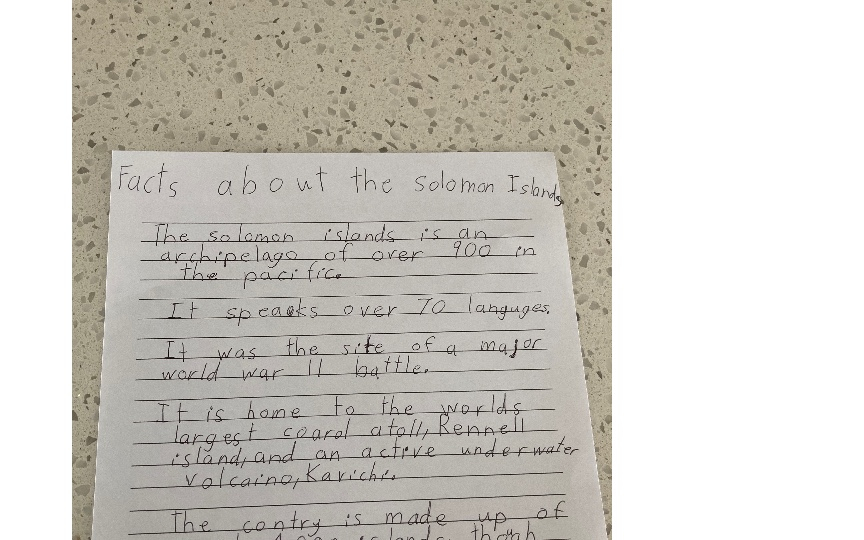 Facts about the solomon Islands
The solomon islands is an
archipelago of over 900 in
the pacific.
It speaks over 70 languges.
It was the site of a major
world war 11 battle.
It is home to the worlds
largest coarol atoll, Rennell
island, and an active underwater
volcaino, Kavichi.
The contry is made up of
islands, though